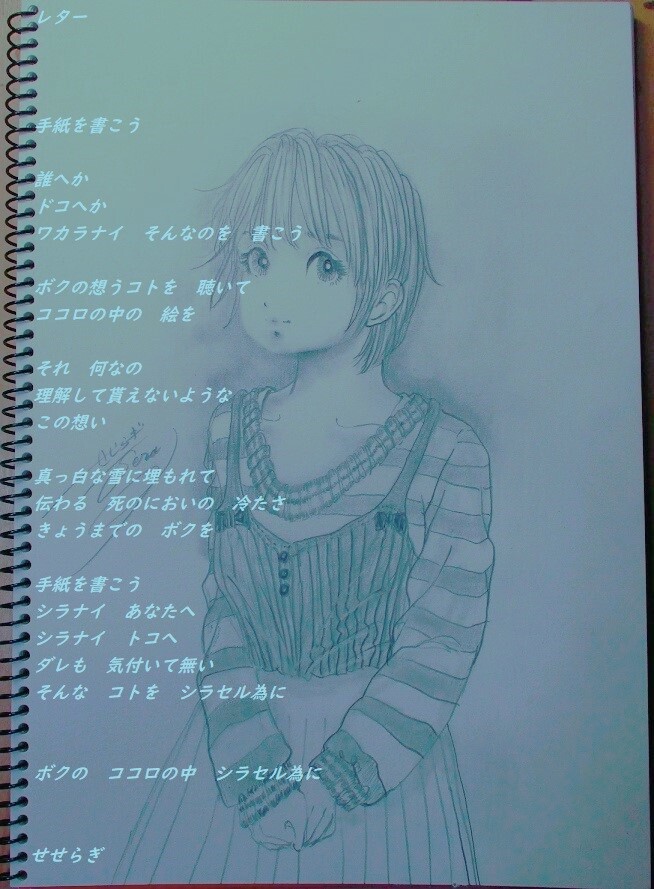 レター
手紙を書こう
誰へか
ドコへか
ワカラナイ　そんなのを　書こう
ボクの想うコトを　聴いて
ココロの中の　絵を
それ　何なの
理解して貰えないような
この想い
真っ白な雪に埋もれて
伝わる　死のにおいの　冷たさ
きょうまでの　ボクを
手紙を書こう
シラナイ　あなたへ
シラナイ　トコへ
ダレも　気付いて無い
そんな　コトを　シラセル為に
ボクの　ココロの中　シラセル為に
せせらぎ